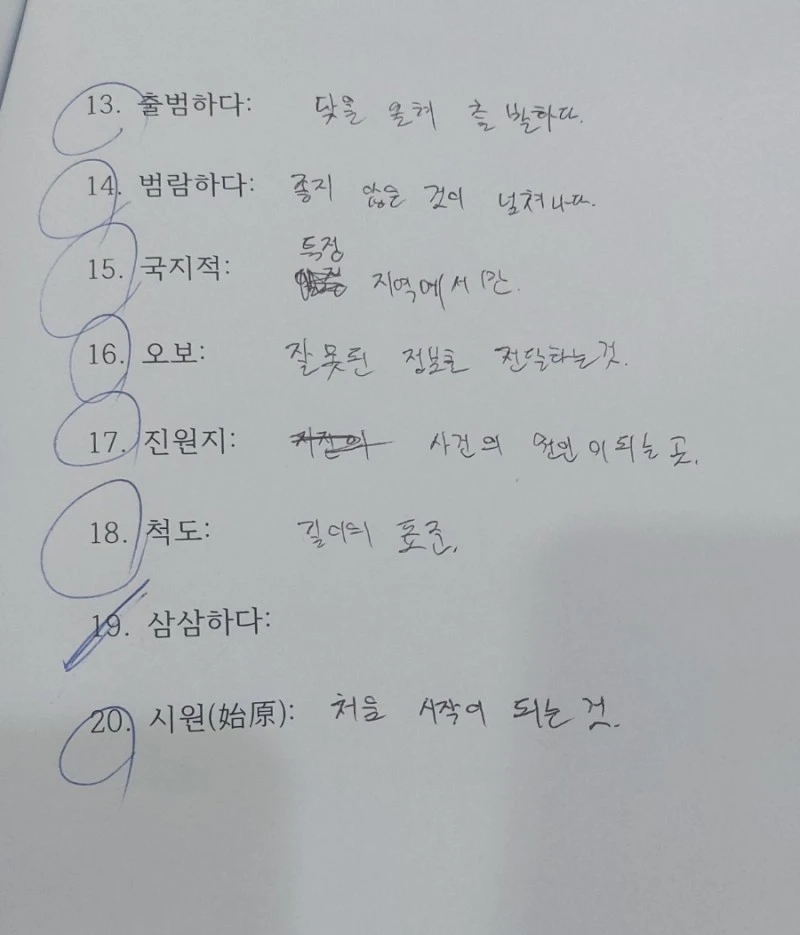 13. 출범하다: 닻을 올려 출발하다.
14. 범람하다: 좋지 않은 것이 넘쳐나다.
15. 국지적: 특정 지역에서만.
16. 오보: 잘못된 정보를 전달하는 것.
17. 진원지: 사건의 원인이 되는 곳.
18. 척도: 길이의 표준.
19. 삼삼하다:
20. 시원(始原): 처음 시작이 되는 것.